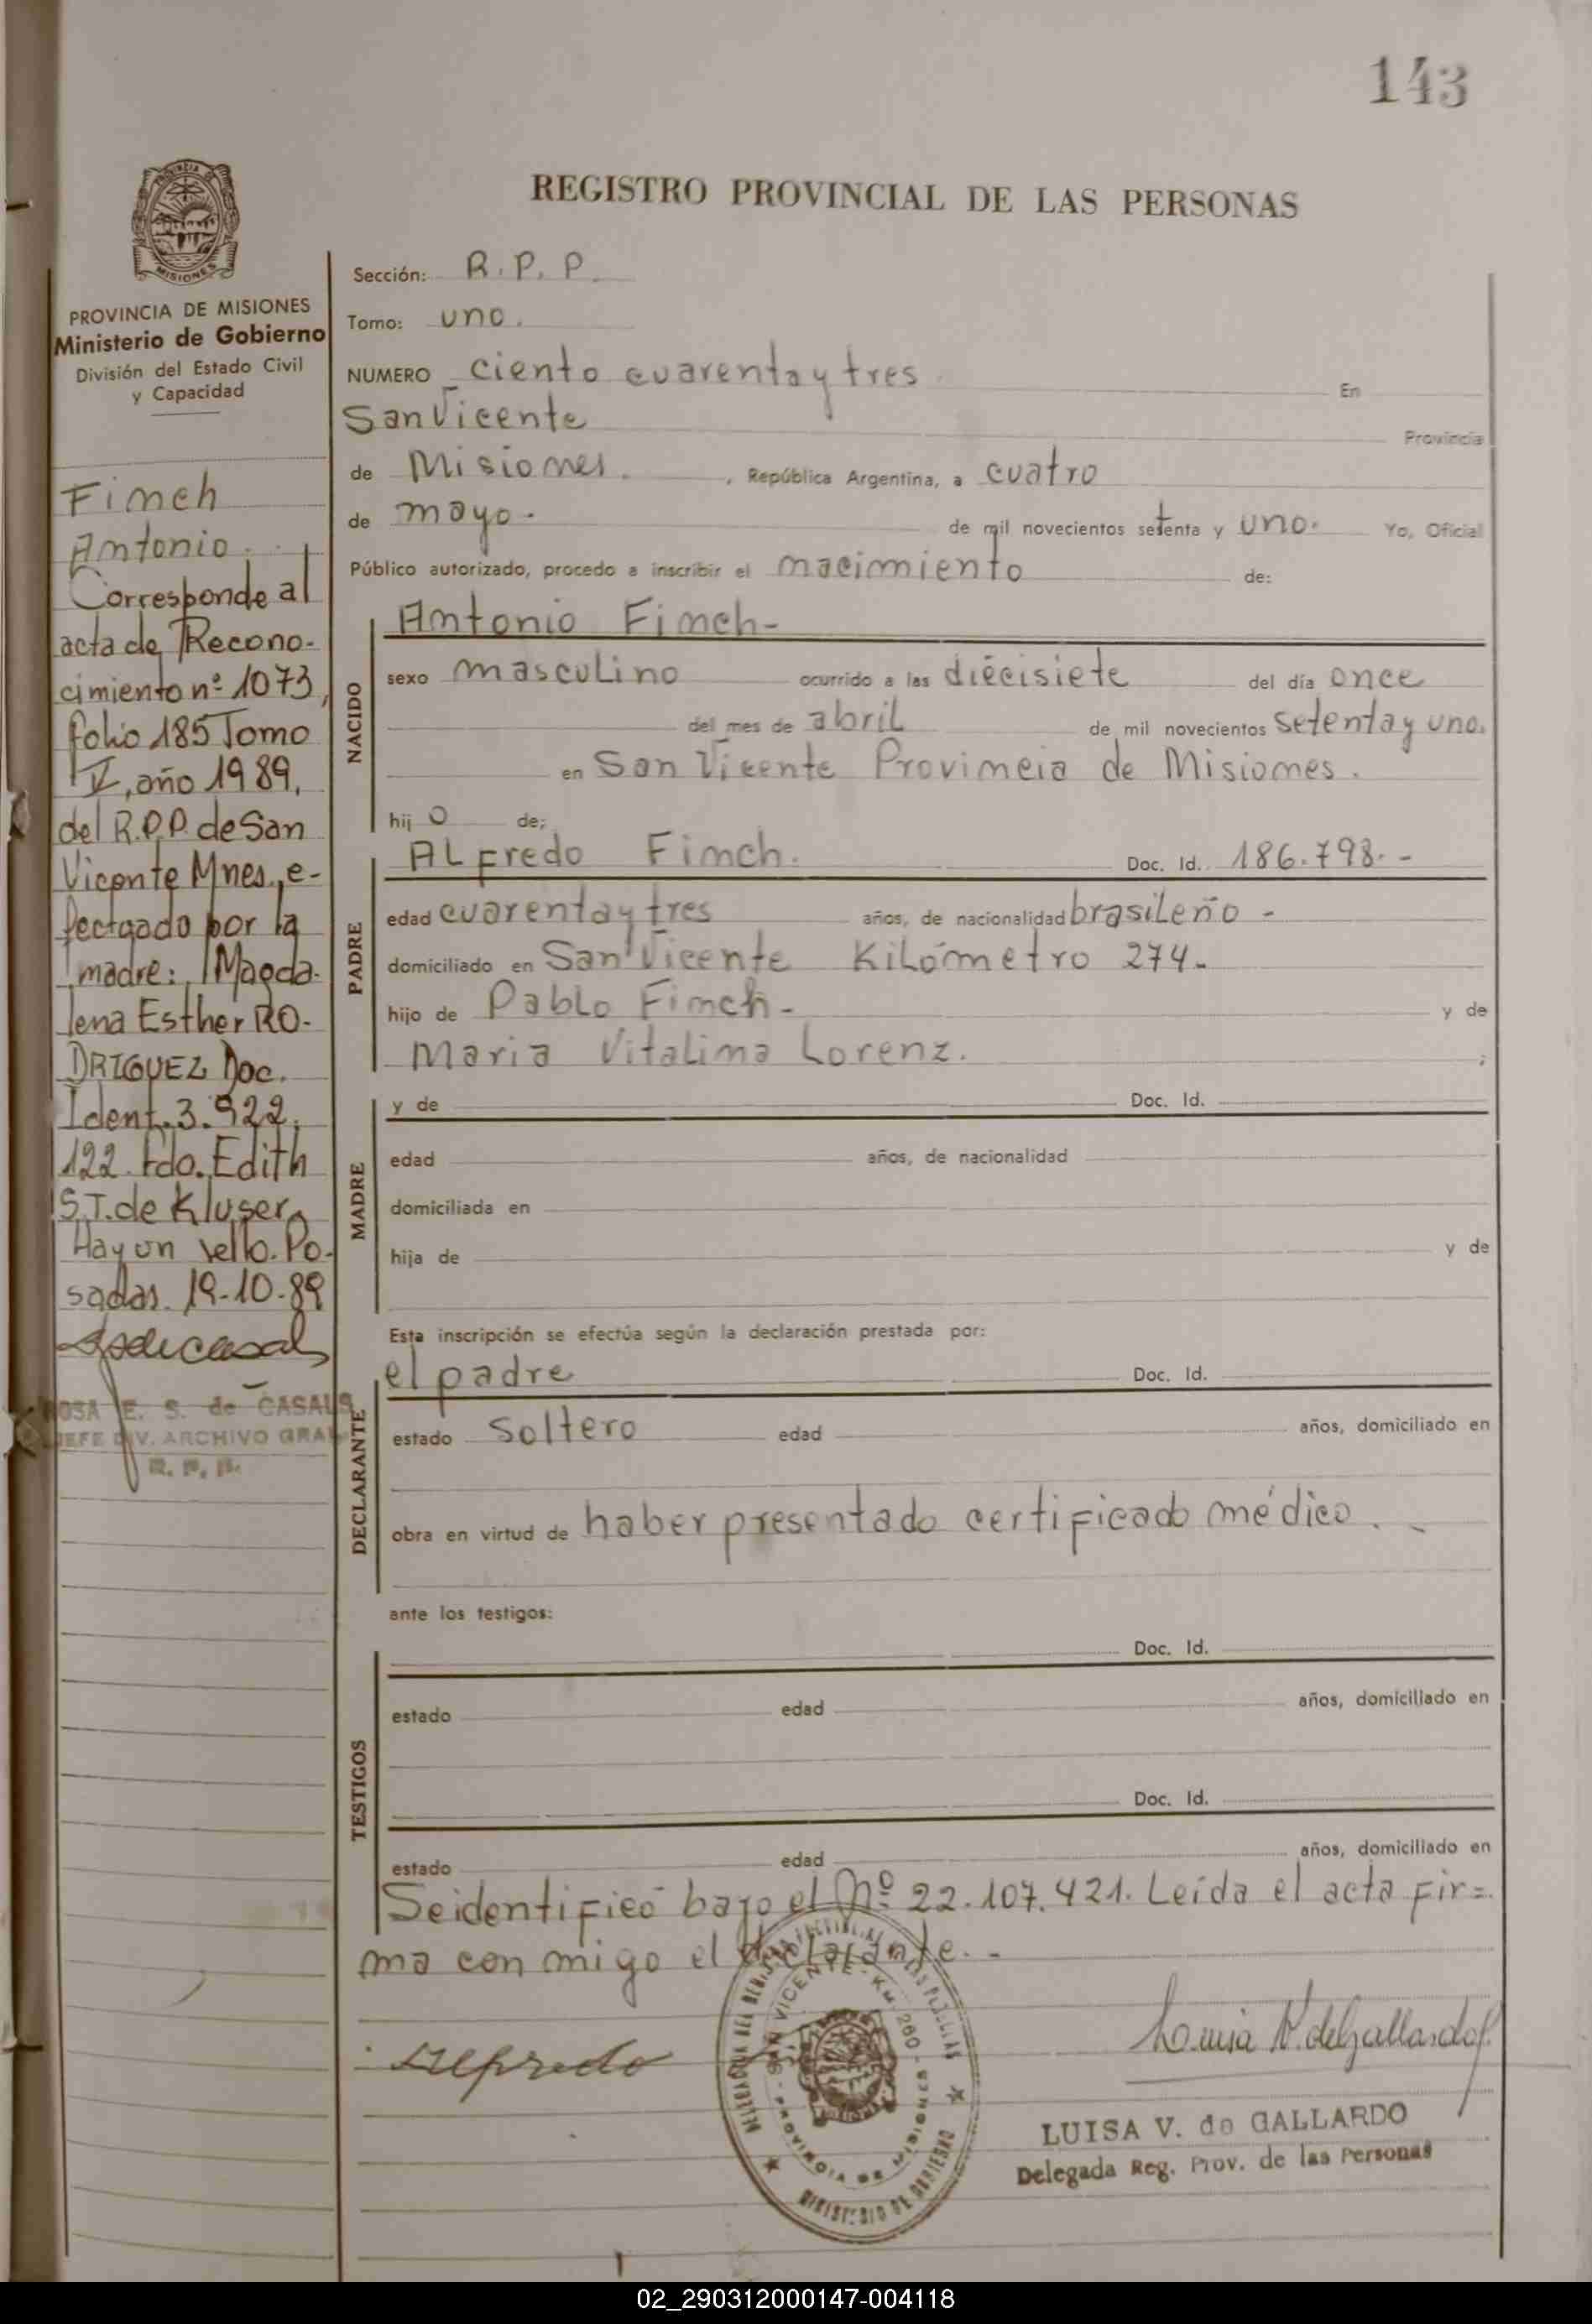 143
REGISTRO PROVINCIAL DE LAS PERSONAS
PROVINCIA DE
MISIONES
PROVINCIA DE MISIONES
Ministerio de Gobierno
División del Estado Civil
y Capacidad
Finch
Antonio.
Corresponde al
acta de Recono-
cimiento nº 1073,
folio 185 Tomo
V, año 1989,
del R.P.P. de San
Vicente Mnes, e-
fectuado por la
madre: Magda-
lena Esther RO-
DRIGUEZ Doc.
Ident. 3.922.
122. Fdo. Edith
S.T. de Kluser.
Hay un sello. Po-
sadas. 19-10-89
ROSA E. S. de CASALS
JEFE DIV. ARCHIVO GRAL
R. P. P.
Sección: R. P. P.
Tomo: uno.
NUMERO ciento cuarenta y tres En
San Vicente Provincia
de Misiones. , República Argentina, a cuatro
de mayo. de mil novecientos setenta y uno. Yo, Oficial
Público autorizado, procedo a inscribir el nacimiento de:
NACIDO
Antonio Finch-
sexo masculino ocurrido a las diecisiete del día once
del mes de abril de mil novecientos setenta y uno.
en San Vicente Provincia de Misiones.
hij o de;
PADRE
ALfredo Finch. Doc. Id. 186.798.-
edad cuarenta y tres años, de nacionalidad brasileño -
domiciliado en San Vicente Kilómetro 274.
hijo de Pablo Finch- y de
Maria Vitalina Lorenz. ;
MADRE
y de Doc. Id.
edad años, de nacionalidad
domiciliada en
hija de y de
Esta inscripción se efectúa según la declaración prestada por:
DECLARANTE
el padre Doc. Id.
estado soltero edad años, domiciliado en
obra en virtud de haber presentado certificado médico. -
ante los testigos:
TESTIGOS
Doc. Id.
estado edad años, domiciliado en
Doc. Id.
estado edad años, domiciliado en
Se identificó bajo el Nº 22.107.421. Leída el acta fir=
ma con migo el declarante. -
Alfredo
DELEGACION DEL REGISTRO PROVINCIAL DE LAS PERSONAS
SAN VICENTE - KM. 260 - PROVINCIA DE MISIONES
MINISTERIO DE GOBIERNO
Luisa V. de Gallardo
LUISA V. de GALLARDO
Delegada Reg. Prov. de las Personas
02_290312000147-004118